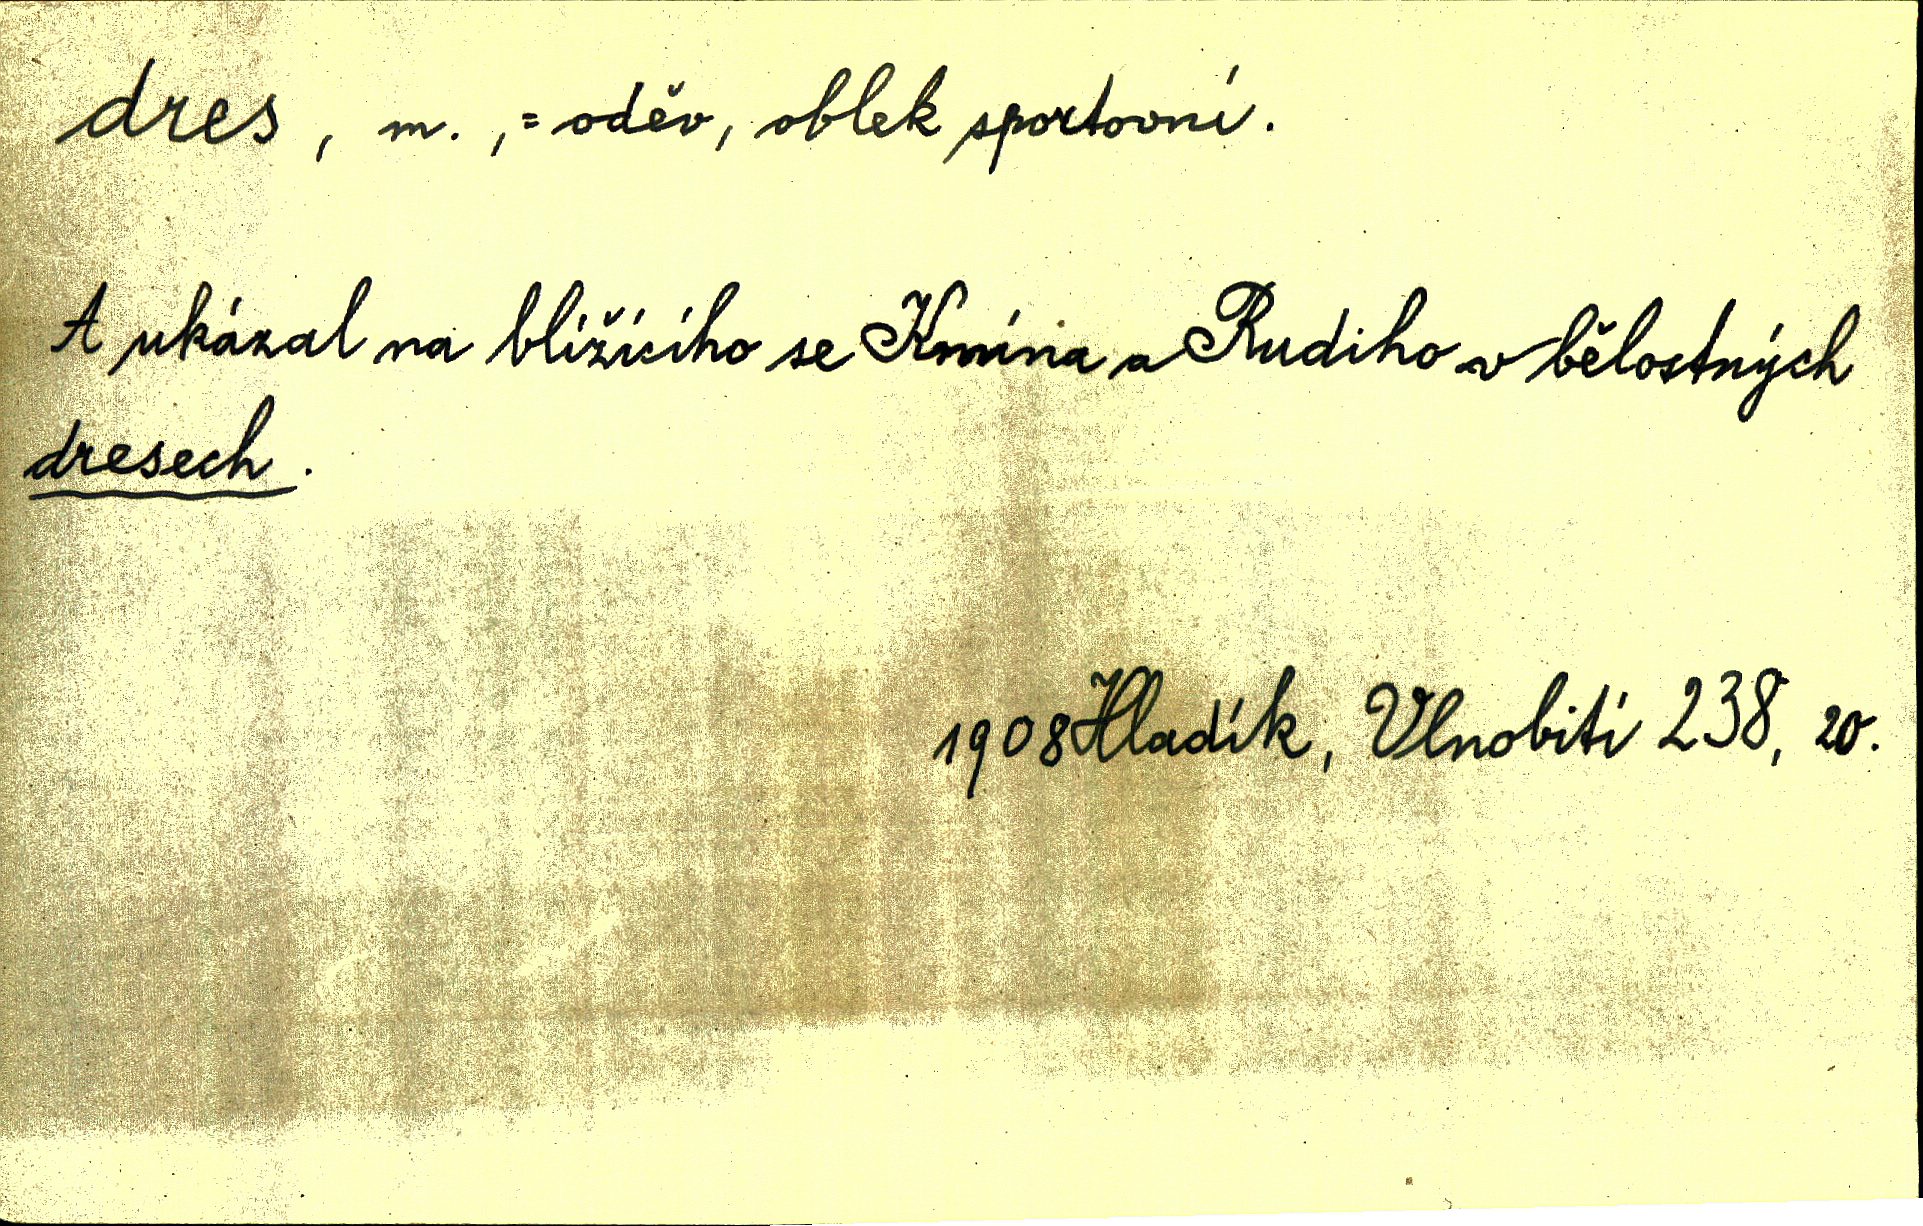 dres, m., = oděv, oblek sportovní.
A ukázal na blížícího se Kmína a Rudiho v bělostných
dresech.
1908 Hladík, Vlnobití 238, 20.